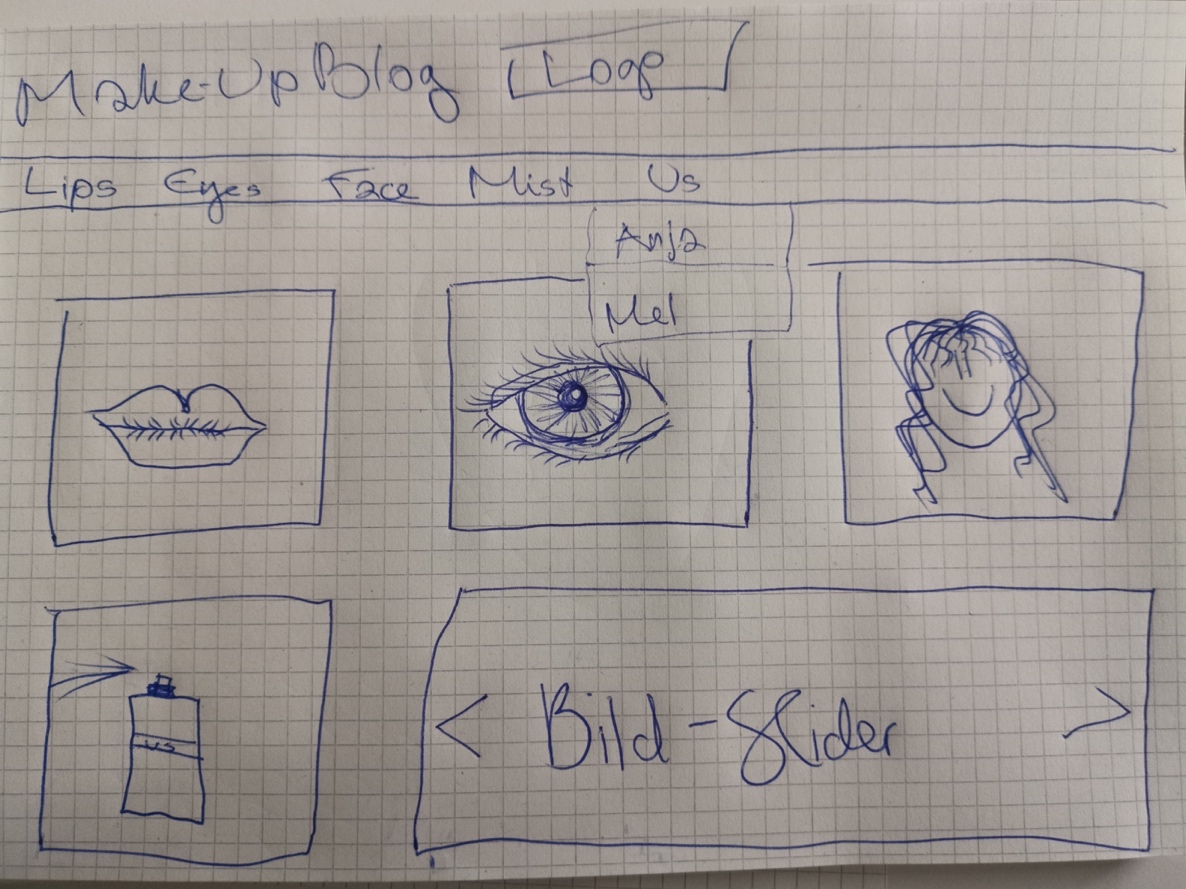 Make-Up Blog Loge
Lips Eyes Face Mist Us
Anja
Mel
US
< Bild-Slider >